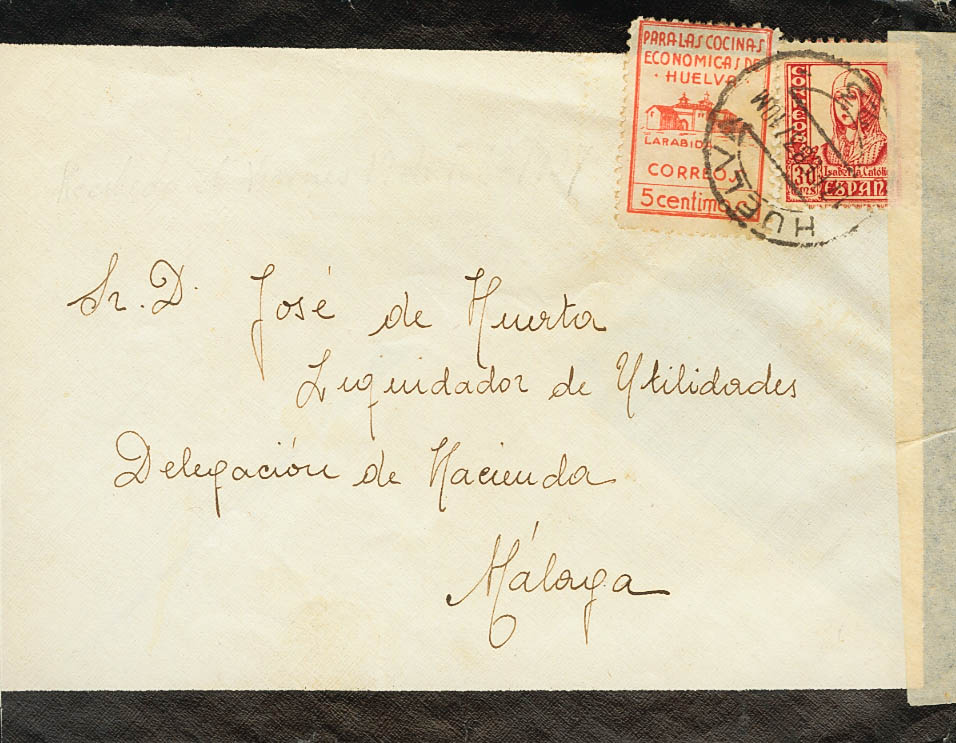 PARA LAS COCINAS
ECONOMICAS DE
HUELVA
LARABIDA
CORREOS
5 centimos
CORREOS
30
cms
Isabel la Católica
ESPAÑA
HUELVA
Sr. D. José de Huerta
Liquidador de Utilidades
Delegación de Hacienda
Málaga